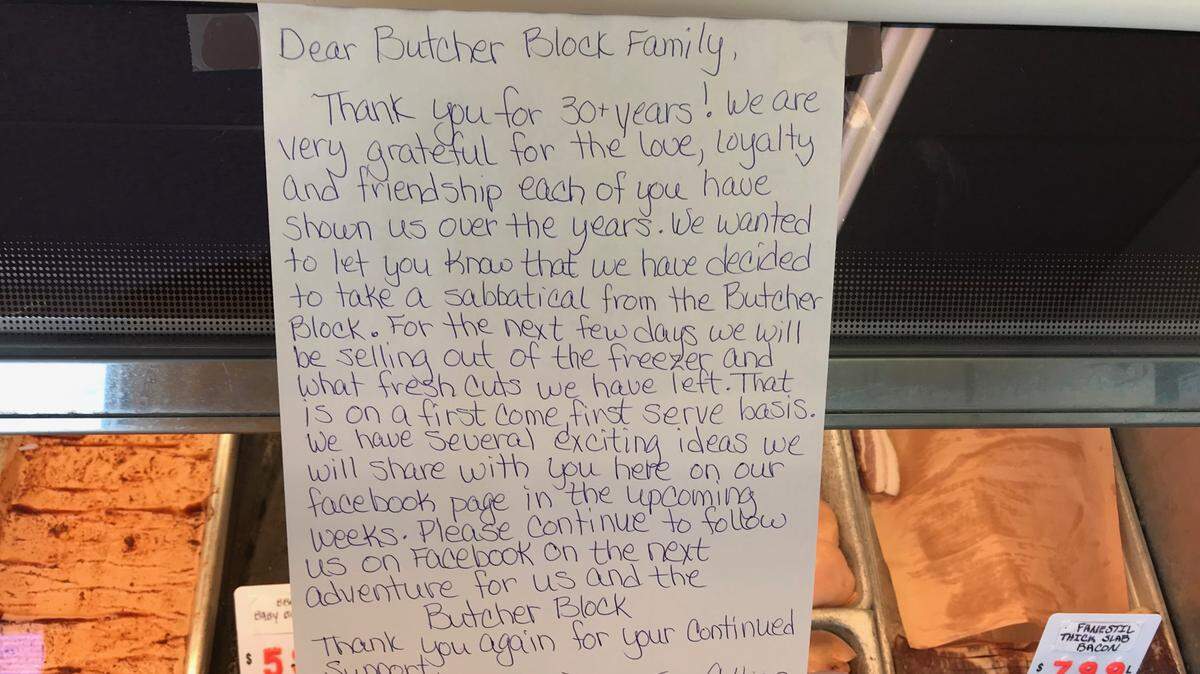 Dear Butcher Block Family,
Thank you for 30+ years! We are
very grateful for the love, loyalty
and friendship each of you have
shown us over the years. We wanted
to let you know that we have decided
to take a sabbatical from the Butcher
Block. For the next few days we will
be selling out of the freezer and
what fresh cuts we have left. That
is on a first come first serve basis.
We have several exciting ideas we
will share with you here on our
facebook page in the upcoming
weeks. Please continue to follow
us on Facebook on the next
adventure for us and the
Butcher Block
Thank you again for your continued
Support
BABY
$ 5
FANESTIL
THICK SLAB
BACON
$ 7.99 L